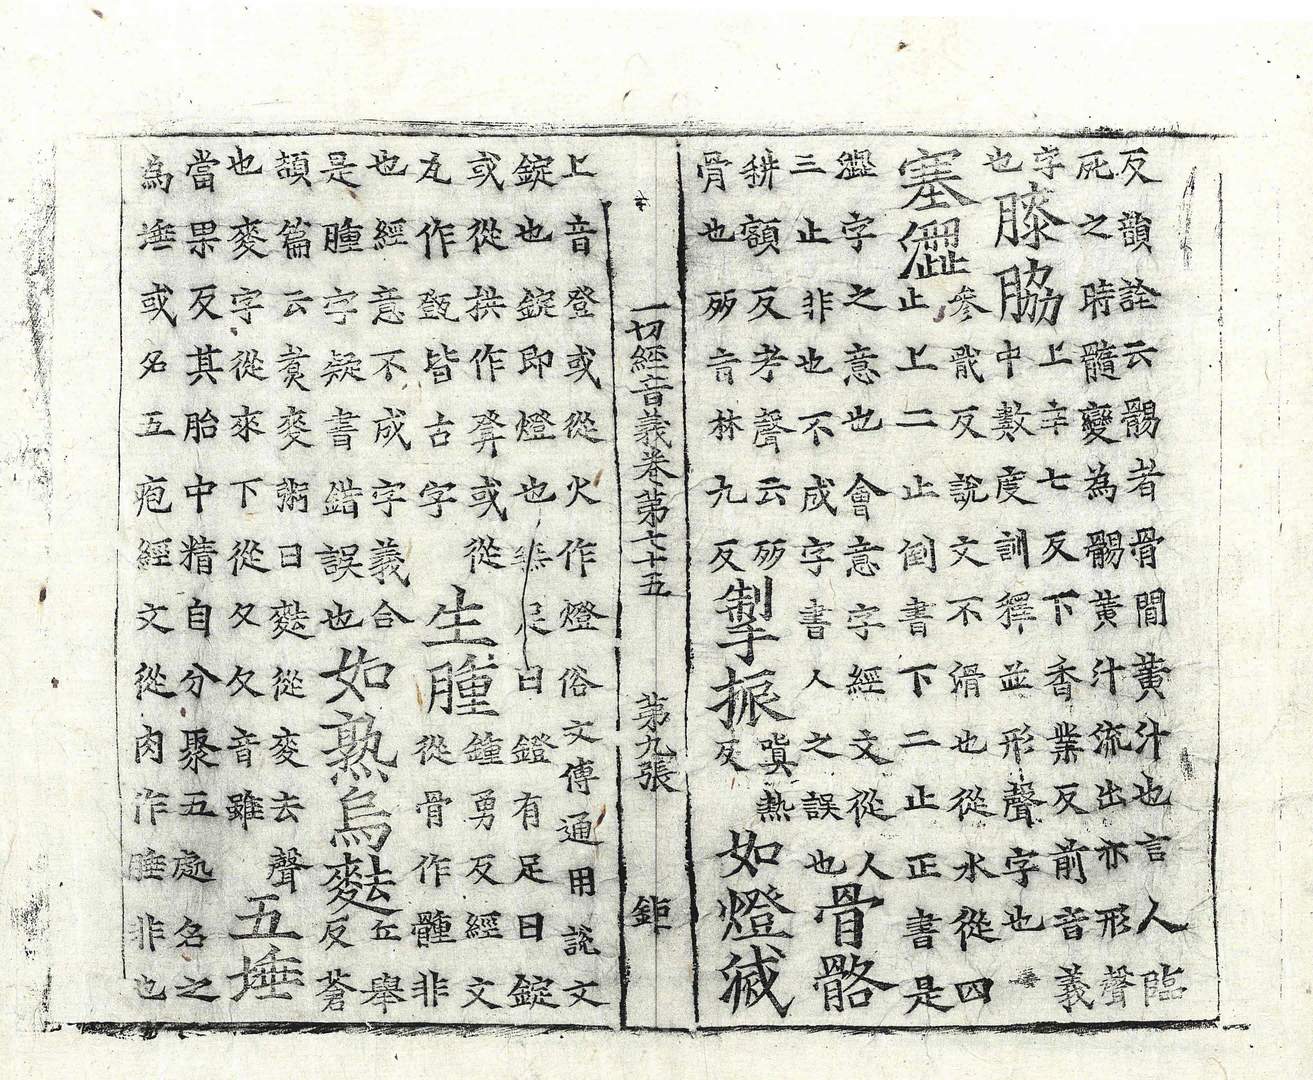 反韻詮云䯝者骨間黃汁也言人臨
死之時髓變為䯝黃汁流出亦形聲
字
也
膝脇
上辛七反下香業反前音義
中數度訓釋並形聲字也
塞澀
參戢反說文不滑也從水從四
止上二止倒書下二止正書是
澀字之意也會意字經文從人
三止非也不成字書人之誤也
骨骼
耕額反考聲云
骨也 音林九反
掣振
嗔熱
反
如燈滅
一切經音義卷第七十五 第九張 鉅
上音登或從火作燈俗文傳通用說文
錠也錠即燈也無足曰鐙有足曰錠
或從拱作 或從
瓦作 皆古字
生腫
鐘勇反經文
從骨作 非
也經意不成字義合
是腫字疑書錯誤也
如熟烏麮
丘舉
反蒼
頡篇云煑麥粥曰麮從麥去聲
也麥字從來下從夂夂音雖
五埵
當果反其胎中精自分聚五處名之
為埵或名五疱經文從肉作腄非也